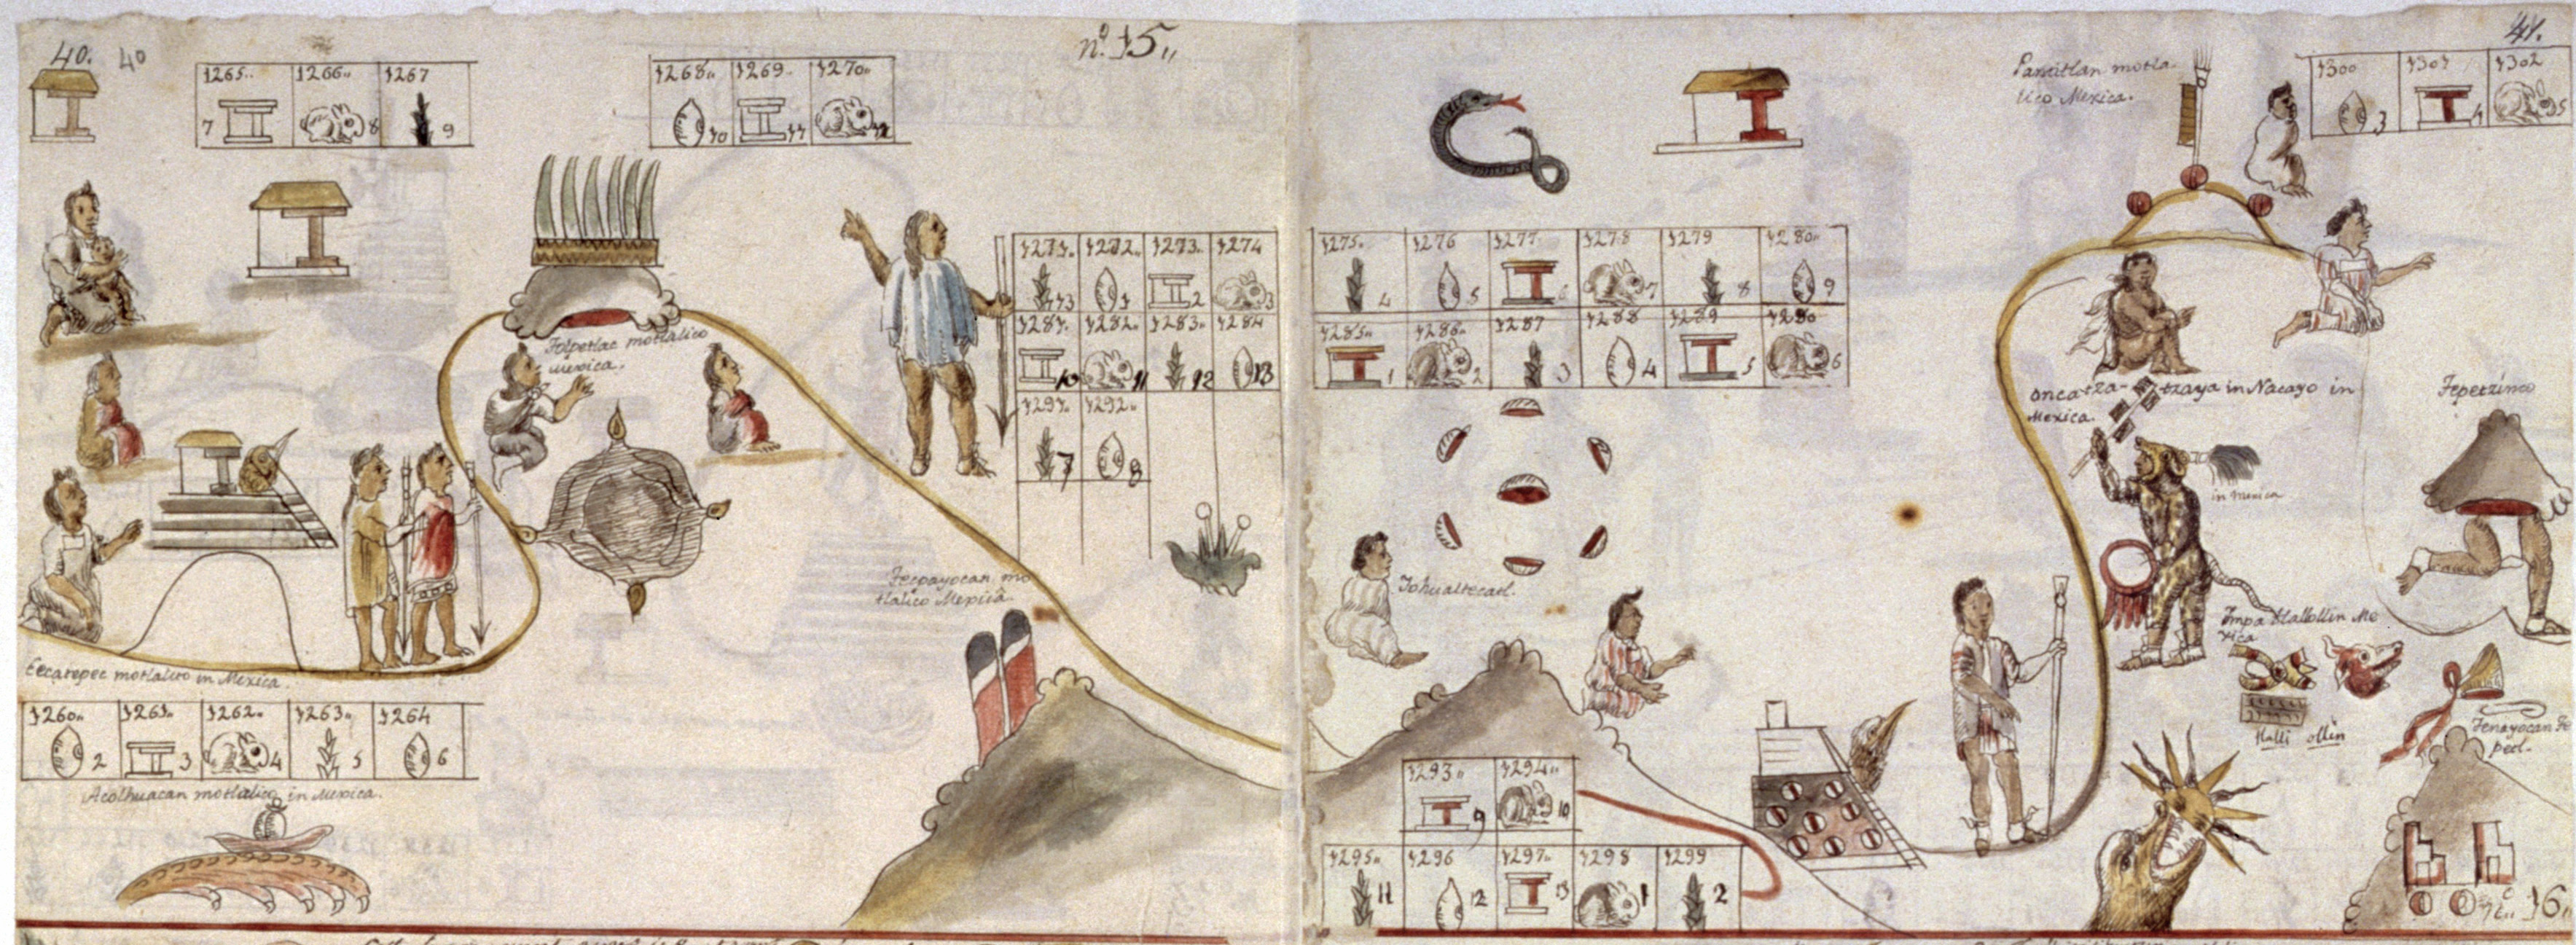 40. 40
nº 15„
1265„ 1266„ 1267
7 8 9
1268„ 1269„ 1270„
10 11 12
1271„ 1272„ 1273„ 1274
13 1 2 3
1281„ 1282„ 1283„ 1284
10 11 12 13
1291„ 1292„
7 8
Tolpetlac motlalico
mexica.
Tecpayocan mo
tlalico Mexica
Ecatepec motlalico in Mexica.
1260„ 1261„ 1262„ 1263„ 1264
2 3 4 5 6
Acolhuacan motlalico in Mexica.
41.
Pantitlan motla-
lico Mexica.
1300 1301 1302
3 4 5
1275„ 1276 1277„ 1278 1279 1280„
4 5 6 7 8 9
1285„ 1286„ 1287 1288 1289„ 1290
1 2 3 4 5 6
oncatza-tzaya in Nacayo in
Mexica.
Tepetzinco
in Mexica
Tohualtecatl.
Impa tlalollin Me
xica
tlalli ollin
Tenayocan te
petl.
1293„ 1294„
9 10
1295„ 1296 1297„ 1298 1299
11 12 13 1 2
16„